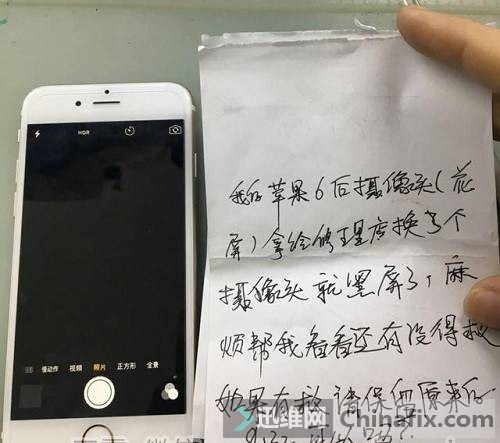 HDR
慢动作 视频 照片 正方形 全景
我的苹果6后摄像头(花
屏)拿给修理店换了个
摄像头就黑屏了,麻
烦帮我看看还有没得救
如果有救请保留原来的
迅维网
Chinafix.com